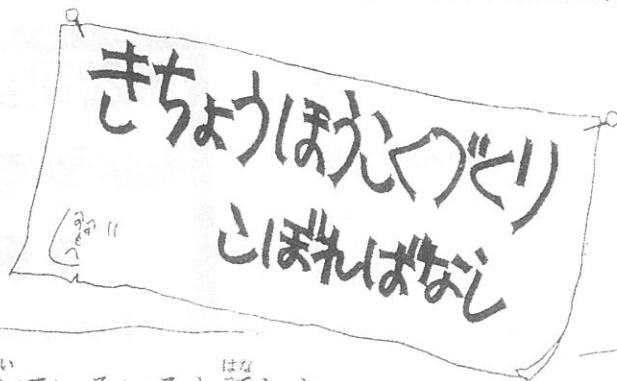 きちょうほうこくづくり
こぼればなし